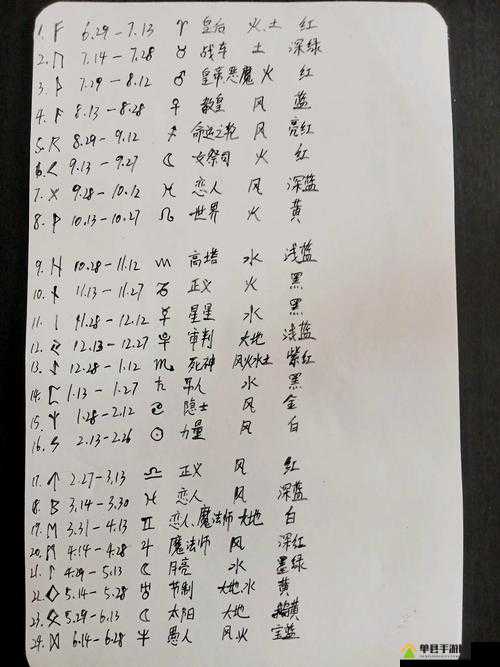 1. ᚠ 6.29-7.13 ♈ 皇后 火、土 红
2. ᚢ 7.14-7.28 ♉ 战车 土 深绿
3. ᚦ 7.29-8.12 ♂ 皇帝恶魔 火 红
4. ᚨ 8.13-8.28 ♀ 教皇 风 蓝
5. ᚱ 8.29-9.12 ♐ 命运之轮 风 亮红
6. ᚲ 9.13-9.27 ☾ 女祭司 火 红
7. ᚷ 9.28-10.12 ♓ 恋人 风 深蓝
8. ᚹ 10.13-10.27 ♌ 世界 火 黄
9. ᚺ 10.28-11.12 高塔 水 浅蓝
10. ᚾ 11.13-11.27 正义 火 黑
11. ᛁ 11.28-12.12 星星 水 黑
12. 12.13-12.27 审判 大地 浅蓝
13. 12.28-1.12 ♏ 死神 风火水土 紫红
14. 1.13-1.27 ♄ 水 黑
15. ᛉ 1.28-2.12 隐士 风 金
16. ᛊ 2.13-2.26 ☉ 力量 风 白
17. ᛏ 2.27-3.13 ♎ 正义 风 红
18. ᛒ 3.14-3.30 ♓ 恋人 风 深蓝
19. ᛖ 3.31-4.13 ♊ 恋人、魔法师 大地 白
20. ᛗ 4.14-4.28 ♃ 魔法师 风 深红
21. ᛚ 4.29-5.13 ☾ 月亮 水 墨绿
22. ◇ 5.14-5.28 节制 大地、水 黄
23. ᛟ 5.29-6.13 ☾ 太阳 大地 黄
24. ᛞ 6.14-6.28 愚人 风、火 宝蓝
单县手游网